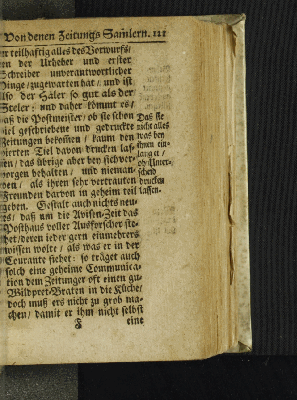 Von denen Zeitungs Sam̃lern. 121
er teilhaftig alles des Vorwurfs/
on der Urheber und erster
Schreiber unverantwortlicher
Dinge/zugewarten hat/ und ist
lso der Häler so gut als der
Steler: und daher kömmt es/
aß die Postmeister/ ob sie schon
iel geschriebene und gedruckte
Zeitungen bekom̃en/ kaum den
vierten Tiel davon drucken las
en/ das übrige aber bey sich ver-
borgen behalten/ und nieman-
den/ als ihren sehr vertrauten
Freunden davon in geheim teil
geben. Gestalt auch nichts neu-
es/ daß um die Avisen-Zeit das
Posthaus voller Ausforscher ste-
het/deren ieder gern ein mehrers
wissen wolte/ als was er in der
Courante siehet: so träget auch
solch eine geheime Communica-
tion dem Zeitunger oft einen gu-
Wildpret-Braten in die Küche/
doch muß ers nicht zu grob ma-
chen/ damit er ihm nicht selbst
eine
Das sie
nicht alles
was bey
ihnen ein-
langet/
ohn Unter-
scheid
drucken
lassen.